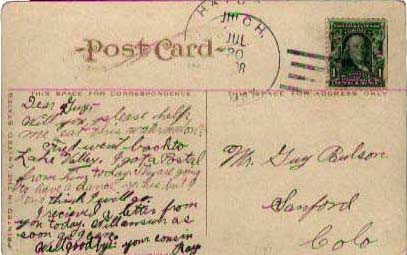 Post Card
HATCH,
JUL
20
THIS SPACE FOR CORRESPONDENCE
THIS SPACE FOR ADDRESS ONLY
PRINTED IN THE UNITED STATES
Dear Guy:
Will you please help
me eat this watermelon?
Fred went back to
Lake Valley. I got a Postal
from him today. They are going
to have a dance but I
think I will go.
I recieved a letter from
you today. Will answer as
soon as I can.
Well goodbye. your cousin
Ray
Mr. Guy Bulson
Sanford
Colo